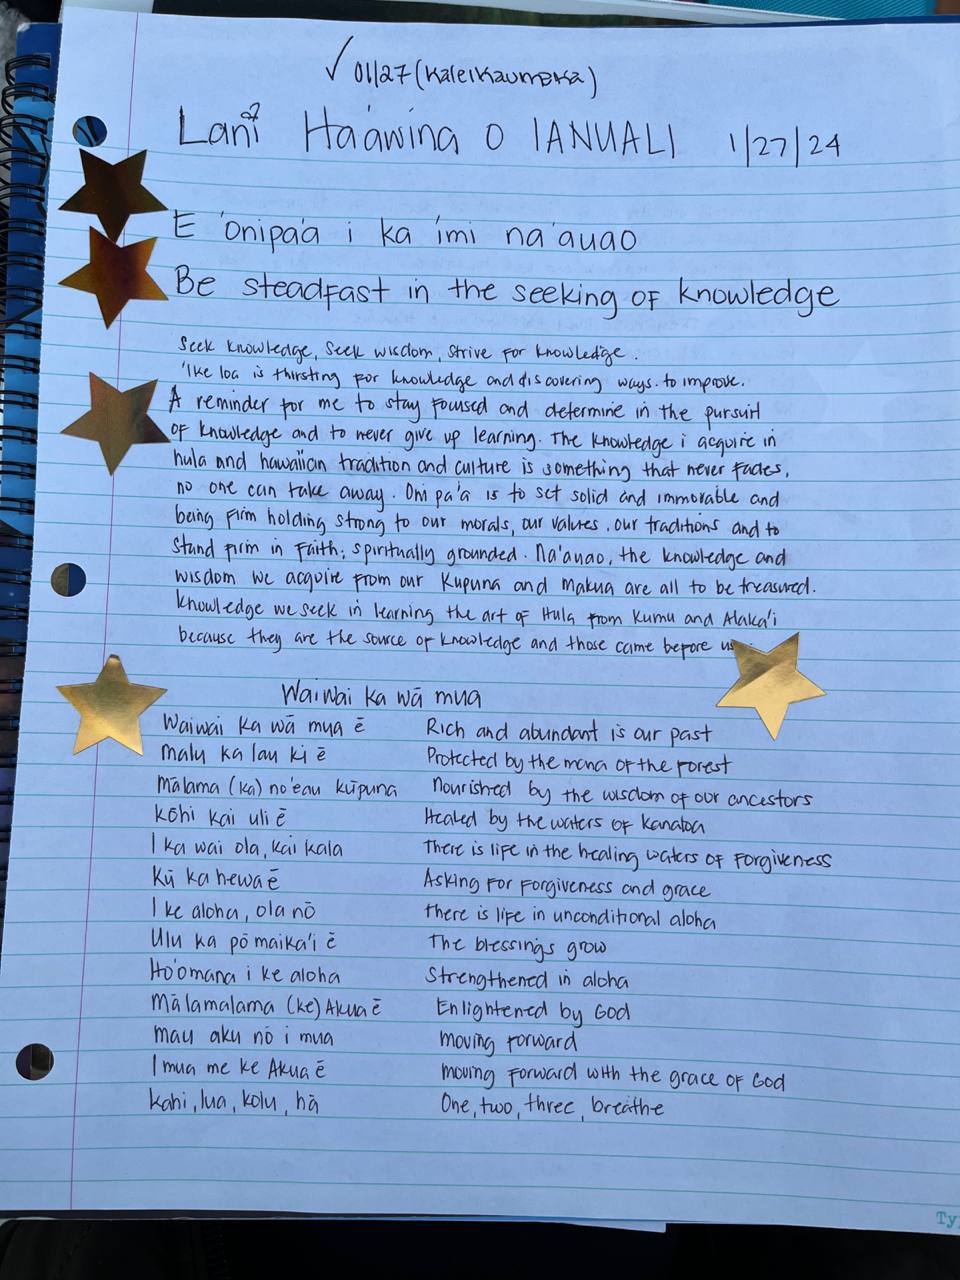 ✓ 01/27 (Kaleikaumaka)
Lani Ha'awina O IANUALI 1/27/24
E 'onipa'a i ka 'imi na'auao
Be steadfast in the seeking of knowledge
Seek knowledge, seek wisdom, strive for knowledge.
'Ike loa is thirsting for knowledge and discovering ways to improve.
A reminder for me to stay focused and determine in the pursuit
of knowledge and to never give up learning. The knowledge i acquire in
hula and hawaiian tradition and culture is something that never fades,
no one can take away. Oni pa'a is to set solid and immovable and
being firm holding strong to our morals, our values, our traditions and to
stand firm in faith, spiritually grounded. Na'auao, the knowledge and
wisdom we acquire from our Kupuna and Makua are all to be treasured.
knowledge we seek in learning the art of Hula from Kumu and Alaka'i
because they are the source of knowledge and those came before us
Waiwai ka wā mua
Waiwai ka wā mua ē Rich and abundant is our past
malu ka lau ki ē Protected by the mana of the forest
mālama (ka) no'eau kūpuna nourished by the wisdom of our ancestors
kōhi kai uli ē Healed by the waters of kanaloa
I ka wai ola, kai kala There is life in the healing waters of forgiveness
Kū ka hewa ē Asking for forgiveness and grace
I ke aloha, ola nō there is life in unconditional aloha
Ulu ka pō maika'i ē The blessings grow
Ho'omana i ke aloha Strengthened in aloha
Mālamalama (ke) Akua ē Enlightened by God
mau aku nō i mua moving forward
I mua me ke Akua ē moving forward with the grace of God
kahi, lua, kolu, hā One, two, three, breathe
Ty